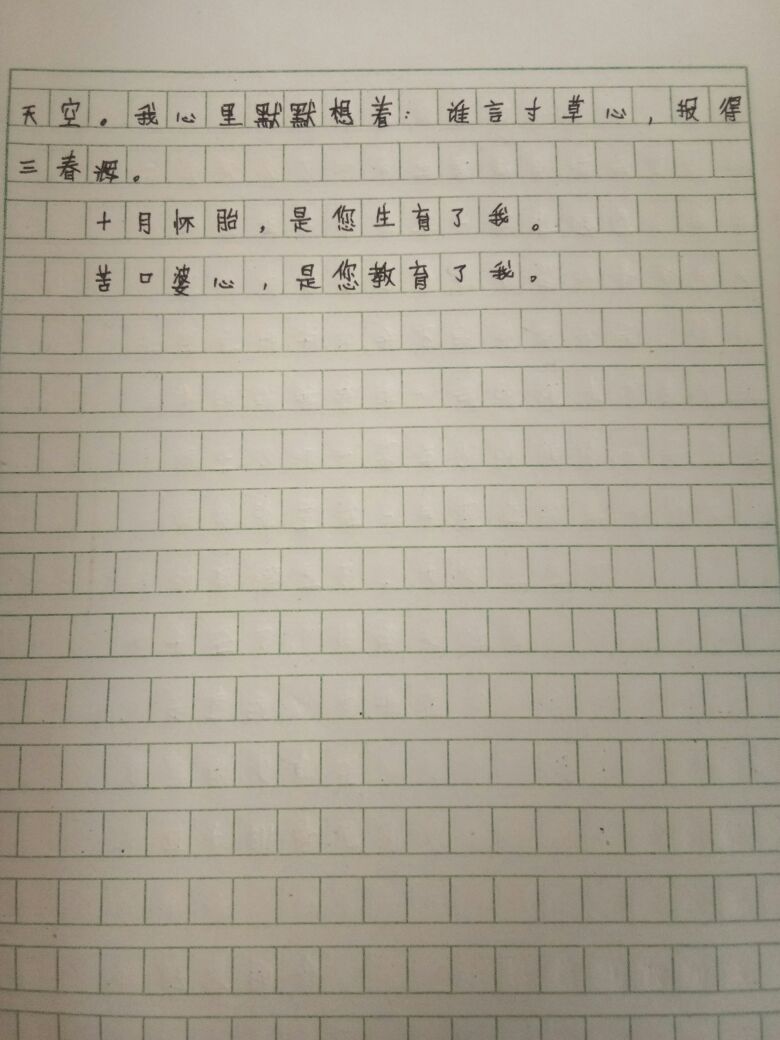 天空。我心里默默想着：谁言寸草心，报得
三春晖。
十月怀胎，是您生育了我。
苦口婆心，是您教育了我。